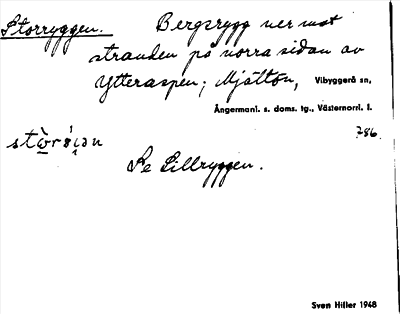 Storryggen. Bergsrygg ner mot
stranden på norra sidan av
Ytteraspen; Mjältön, Vibyggerå sn,
Ångermanl. s. doms. tg., Västernorrl. l.
786.
Se Lillryggen.
Sven Hiller 1948